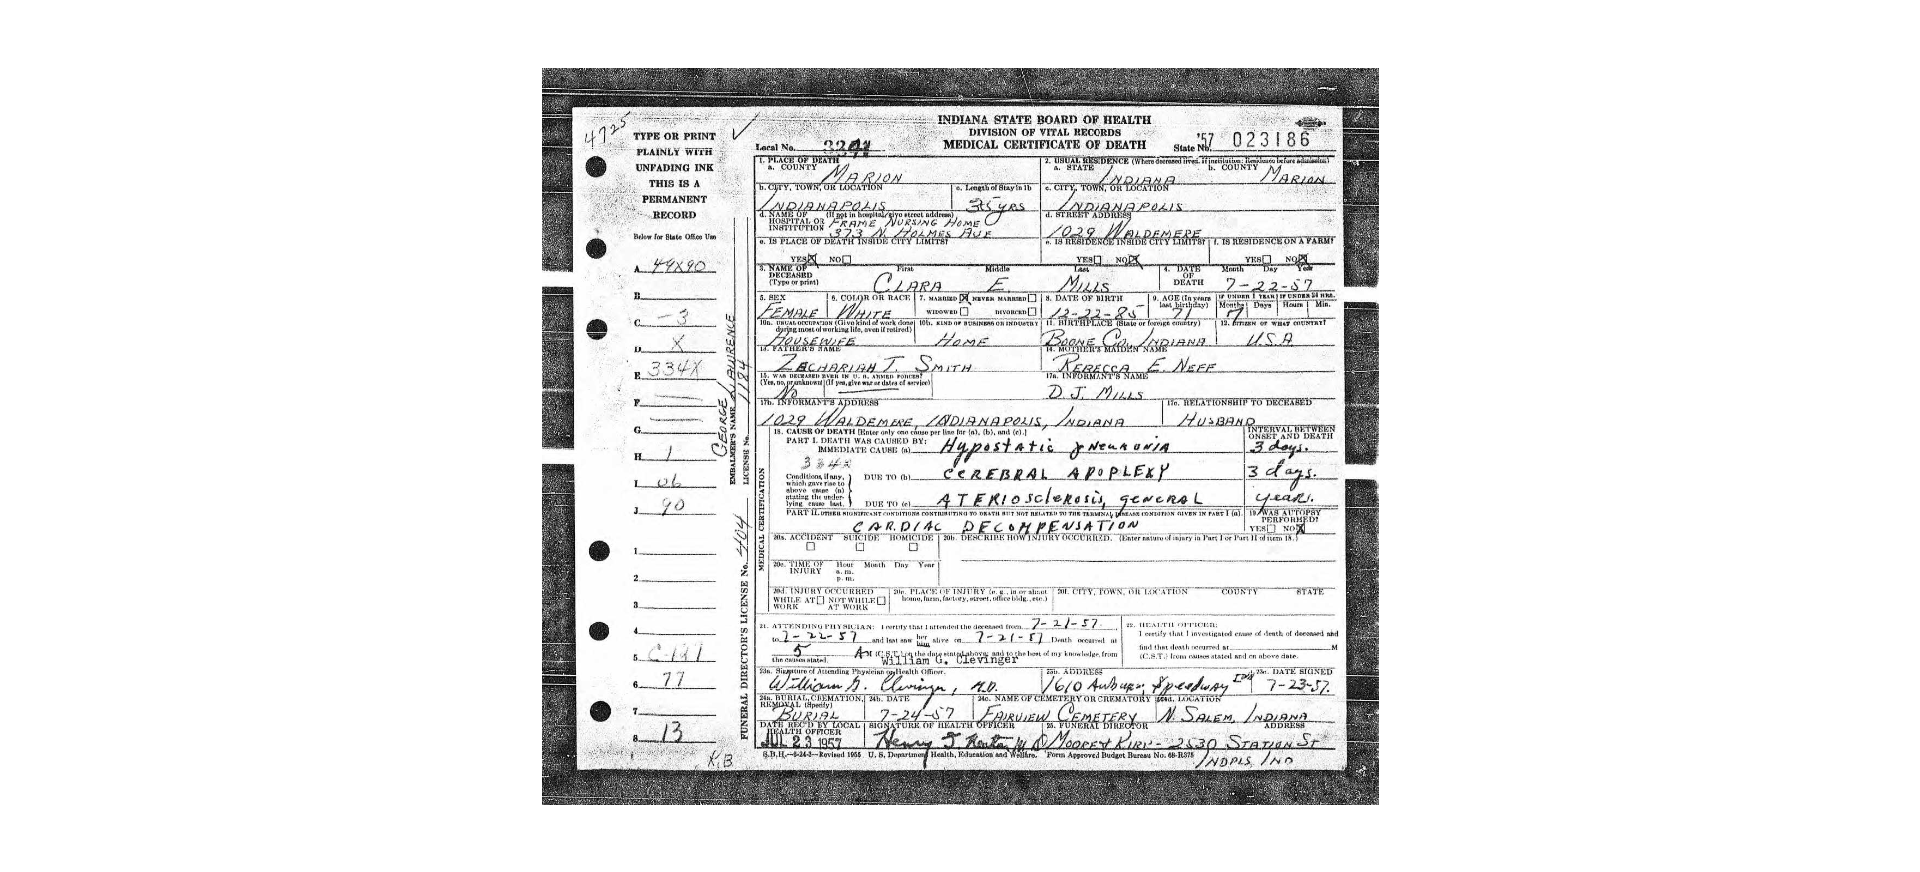 4725
TYPE OR PRINT
PLAINLY WITH
UNFADING INK
THIS IS A
PERMANENT
RECORD
Below for State Office Use
A 49X90
B
C -3
D X
E 334X
F
G
H 1
I 06
J 90
1
2
3
4
5
6 77
7
8 13
K.B
GEORGE LAWRENCE
EMBALMER'S NAME
LICENSE No. 1184
FUNERAL DIRECTOR'S LICENSE No. 404
INDIANA STATE BOARD OF HEALTH
DIVISION OF VITAL RECORDS
MEDICAL CERTIFICATE OF DEATH
Local No.
State No. '57 023186
1. PLACE OF DEATH
a. COUNTY MARION
2. USUAL RESIDENCE (Where deceased lived. If institution: Residence before admission)
a. STATE INDIANA b. COUNTY MARION
b. CITY, TOWN, OR LOCATION INDIANAPOLIS
c. Length of Stay in 1b 35 yrs
c. CITY, TOWN, OR LOCATION INDIANAPOLIS
d. NAME OF HOSPITAL OR INSTITUTION (If not in hospital, give street address)
FRAME NURSING HOME
373 N. HOLMES AVE
d. STREET ADDRESS
1029 WALDEMERE
e. IS PLACE OF DEATH INSIDE CITY LIMITS?
YES☒ NO☐
e. IS RESIDENCE INSIDE CITY LIMITS?
YES☐ NO☒
f. IS RESIDENCE ON A FARM?
YES☐ NO☒
3. NAME OF DECEASED (Type or print)
First Middle Last
CLARA E. MILLS
4. DATE OF DEATH Month Day Year
7-22-57
5. SEX FEMALE
6. COLOR OR RACE WHITE
7. MARRIED☒ NEVER MARRIED☐
WIDOWED☐ DIVORCED☐
8. DATE OF BIRTH 12-22-85
9. AGE (In years last birthday) 71
IF UNDER 1 YEAR Months Days 7
IF UNDER 24 HRS. Hours Min.
10a. USUAL OCCUPATION (Give kind of work done during most of working life, even if retired)
HOUSEWIFE
10b. KIND OF BUSINESS OR INDUSTRY
HOME
11. BIRTHPLACE (State or foreign country)
BOONE CO. INDIANA
12. CITIZEN OF WHAT COUNTRY?
U.S.A
13. FATHER'S NAME
ZECHARIAH T. SMITH
14. MOTHER'S MAIDEN NAME
REBECCA E. NEFF
15. WAS DECEASED EVER IN U. S. ARMED FORCES?
(Yes, no, or unknown) (If yes, give war or dates of service)
No
17a. INFORMANT'S NAME
D. J. MILLS
17b. INFORMANT'S ADDRESS
1029 WALDEMERE, INDIANAPOLIS, INDIANA
17c. RELATIONSHIP TO DECEASED
HUSBAND
MEDICAL CERTIFICATION
18. CAUSE OF DEATH (Enter only one cause per line for (a), (b), and (c).)
INTERVAL BETWEEN ONSET AND DEATH
PART I. DEATH WAS CAUSED BY:
IMMEDIATE CAUSE (a) Hypostatic pneumonia 3 days.
334X
Conditions, if any, which gave rise to above cause (a) stating the underlying cause last.
DUE TO (b) CEREBRAL APOPLEXY 3 days.
DUE TO (c) ATERIOSClerosis, general years.
PART II. OTHER SIGNIFICANT CONDITIONS CONTRIBUTING TO DEATH BUT NOT RELATED TO THE TERMINAL DISEASE CONDITION GIVEN IN PART I (a).
CARDIAC DECOMPENSATION
19. WAS AUTOPSY PERFORMED?
YES☐ NO☒
20a. ACCIDENT SUICIDE HOMICIDE
☐ ☐ ☐
20b. DESCRIBE HOW INJURY OCCURRED. (Enter nature of injury in Part I or Part II of item 18.)
20c. TIME OF INJURY Hour Month Day Year
a. m.
p. m.
20d. INJURY OCCURRED
WHILE AT WORK☐ NOT WHILE AT WORK☐
20e. PLACE OF INJURY (e. g., in or about home, farm, factory, street, office bldg., etc.)
20f. CITY, TOWN, OR LOCATION COUNTY STATE
21. ATTENDING PHYSICIAN: I certify that I attended the deceased from 7-21-57
to 7-22-57 and last saw her him alive on 7-21-57 Death occurred at
5 AM (C.S.T.) on the date stated above; and to the best of my knowledge, from
the causes stated. William G. Clevinger
22. HEALTH OFFICER:
I certify that I investigated cause of death of deceased and
find that death occurred at M
(C.S.T.) from causes stated and on above date.
23a. Signature of Attending Physician or Health Officer.
William G. Clevinger, M.D.
23b. ADDRESS
1610 Auburn, Speedway
23c. DATE SIGNED
7-23-57.
24a. BURIAL, CREMATION, REMOVAL (Specify)
BURIAL
24b. DATE
7-24-57
24c. NAME OF CEMETERY OR CREMATORY
FAIRVIEW CEMETERY
24d. LOCATION
N. SALEM, INDIANA
DATE REC'D BY LOCAL HEALTH OFFICER
JUL 23 1957
SIGNATURE OF HEALTH OFFICER
25. FUNERAL DIRECTOR ADDRESS
MOORE & KIRK - 2530 STATION ST
INDPLS, IND
S.B.H.—6-24-3—Revised 1955 U. S. Department Health, Education and Welfare. Form Approved Budget Bureau No. 68-R375